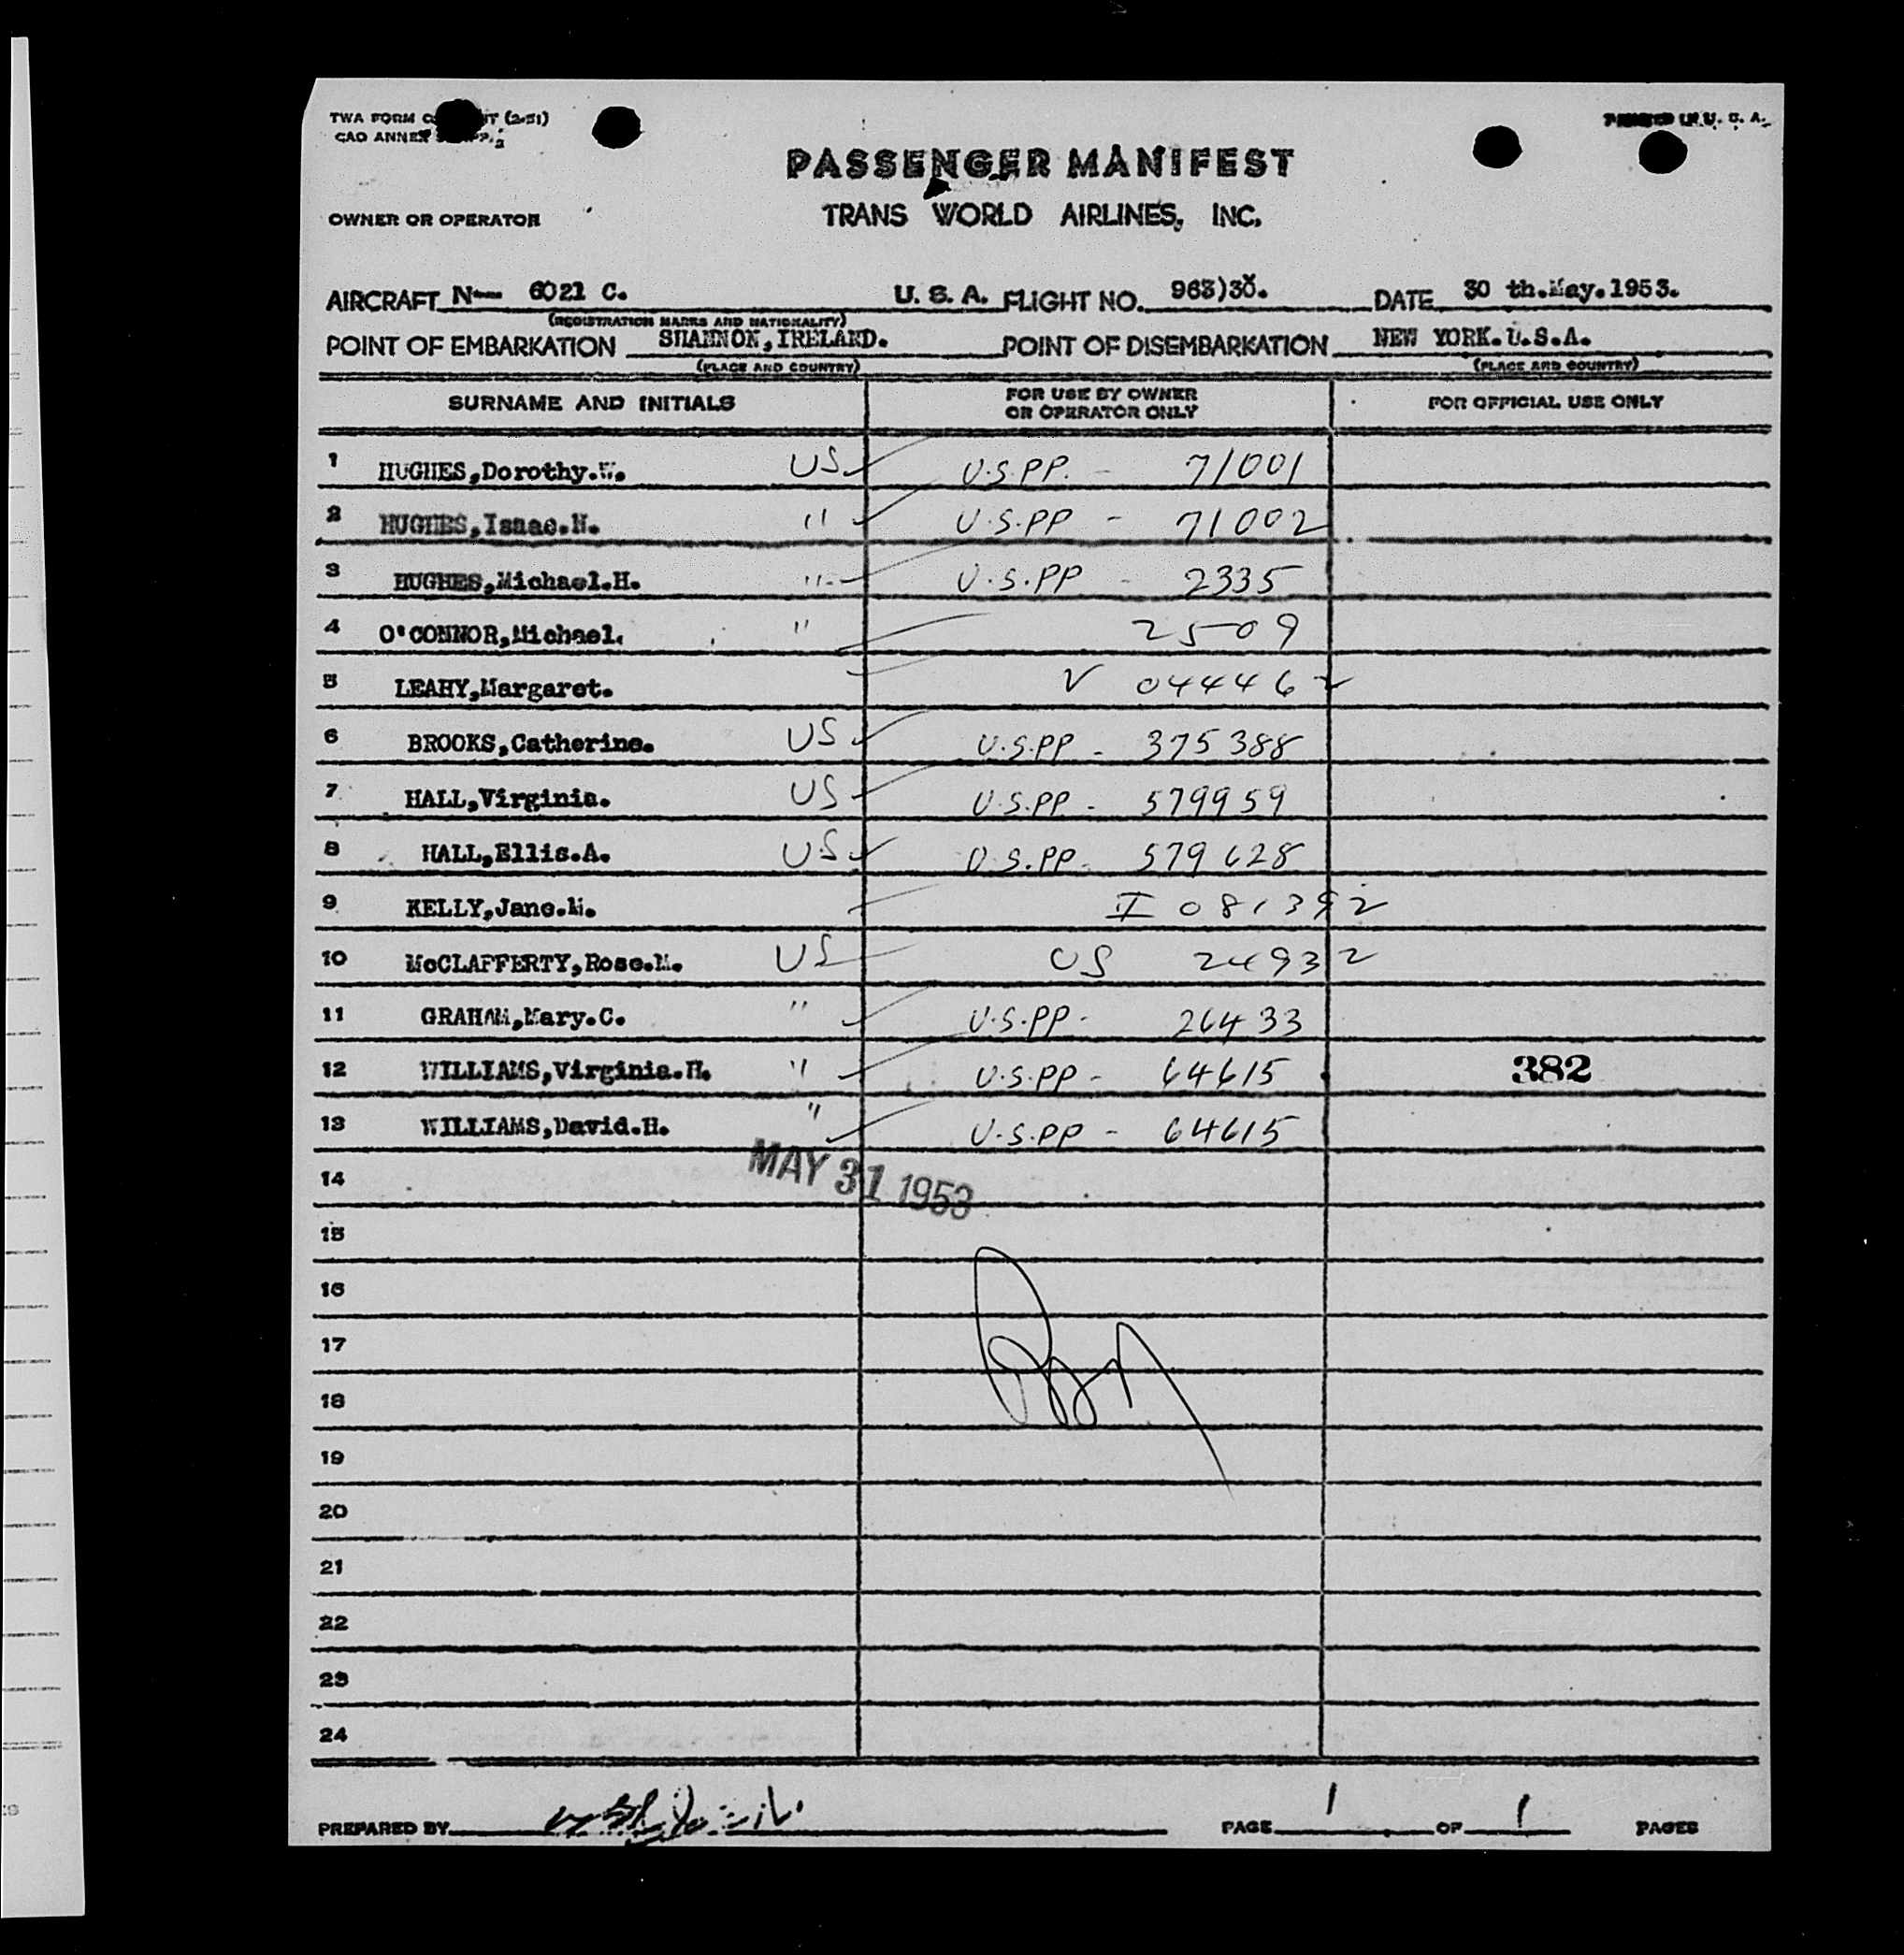 TWA FORM C T (2-51) PRINTED IN U. S. A.
CAO ANNEX
PASSENGER MANIFEST
OWNER OR OPERATOR TRANS WORLD AIRLINES, INC.
AIRCRAFT N— 6021 C. U. S. A. FLIGHT NO. 963)30. DATE 30 th.May.1953.
(REGISTRATION MARKS AND NATIONALITY)
POINT OF EMBARKATION SHANNON,IRELAND. POINT OF DISEMBARKATION NEW YORK.U.S.A.
(PLACE AND COUNTRY) (PLACE AND COUNTRY)
SURNAME AND INITIALS FOR USE BY OWNER OR OPERATOR ONLY FOR OFFICIAL USE ONLY
1 HUGHES,Dorothy.W. US U.S.PP. - 71001
2 HUGHES,Isaac.N. " U.S.PP - 71002
3 HUGHES,Michael.H. " U.S.PP - 2335
4 O'CONNOR,Michael. " 2509
5 LEAHY,Margaret. V 044462
6 BROOKS,Catherine. US U.S.PP - 375388
7 HALL,Virginia. US U.S.PP - 579959
8 HALL,Ellis.A. US U.S.PP - 579628
9 KELLY,Jane.M. I 081392
10 McCLAFFERTY,Rose.M. US US 24932
11 GRAHAM,Mary.C. " U.S.PP - 26433
12 WILLIAMS,Virginia.H. " U.S.PP - 64615 382
13 WILLIAMS,David.H. " U.S.PP - 64615
MAY 31 1953
14
15
16
17
18
19
20
21
22
23
24
PREPARED BY PAGE 1 OF 1 PAGES